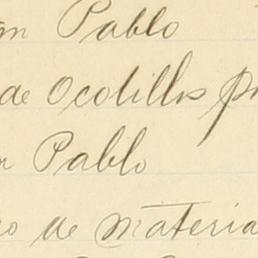 an Pablo
de Ocotillos pr
n Pablo
o de materia